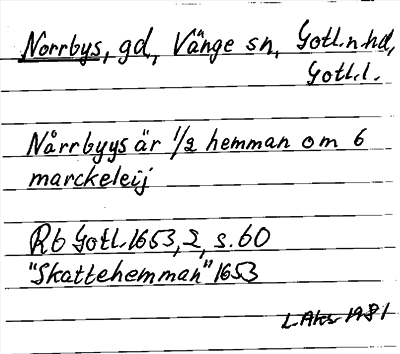 Norrbys, gd, Vänge sn, Gotl. n. hd,
Gotl. l.
Nårrbyys är 1/2 hemman om 6
marckeleij
Rb Gotl. 1653, 2, s. 60
"Skattehemman" 1653
L. Ahs 1981